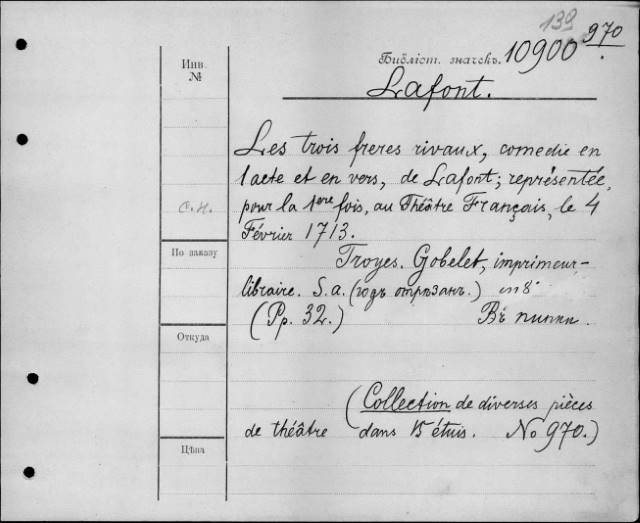 139
Библіот. значекъ. 10900 970
Инв. №
Lafont.
Les trois freres rivaux, comedie en
1 acte et en vers, de Lafont; représentée,
С.Н.
pour la 1ere fois, au Théâtre Français, le 4
Février 1713.
По заказу
Troyes. Gobelet, imprimeur-
libraire. S.a. (годъ отрѣзанъ.) in 8°
(Pp. 32.) Въ папки.
Откуда
(Collection de diverses pièces
de théâtre dans 15 étuis. No 970.)
Цѣна